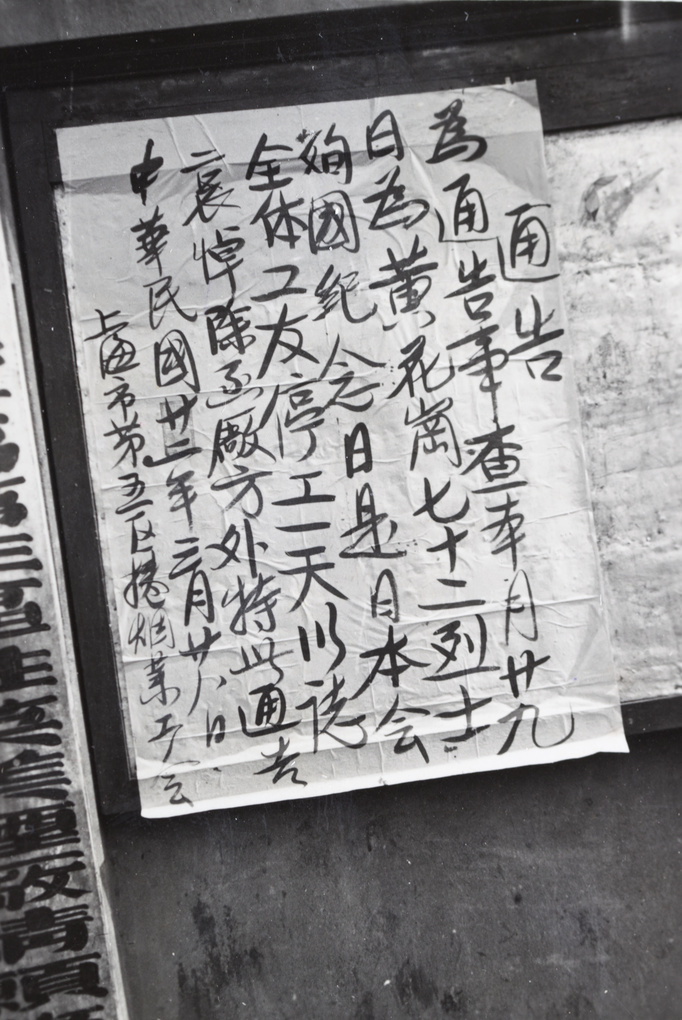 通告
為通告事查本月廿九
日為黃花崗七十二烈士
殉國紀念日是日本会
全体工友停工一天以誌
哀悼除函厰方外特此通告
中華民國廿三年三月廿八日
上海市第五区捲烟業工会